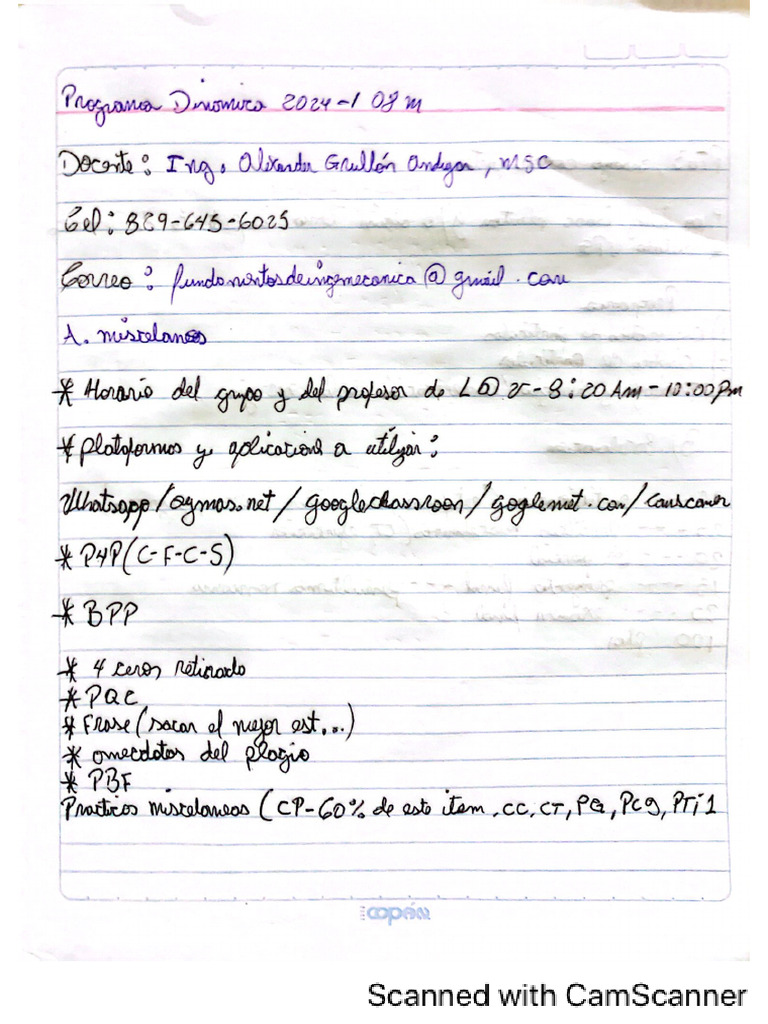 Programa Dinamica 2024-1 08 m
Docente: Ing. Alixander Grullón Andujar, MSC
Cel: 829-645-6025
Correo: fundamentosdeingemecanica@gmail.com
A. miscelaneos
* Horario del grupo y del profesor de L @ V - 8:20 Am - 10:00 Pm
* plataformas y aplicaciones a utilizar:
Whatsapp/agmas.net/googleclassroon/goglemet.com/camscaner
* P4P(C-F-C-S)
* BPP
* 4 ceros retirado
* PQC
* Frase (sacar el mejor est...)
* anecdotas del plagio
* PBF
Practicos miscelaneos (CP-60% de este item, CC, CT, PQ, PCg, PTi1
copán
Scanned with CamScanner